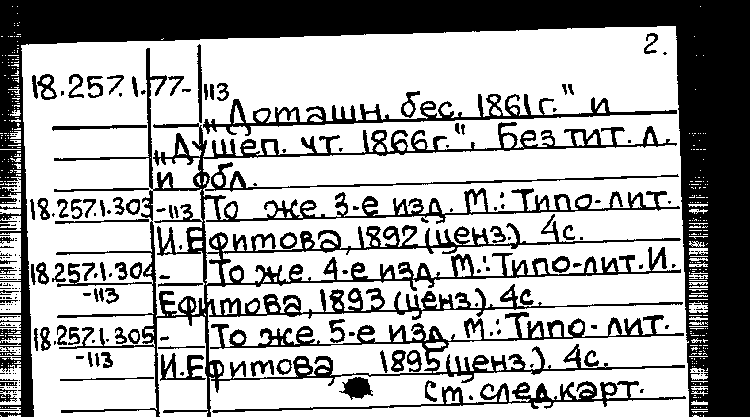 2.
18.257.1.77-113
„Доташн. бес. 1861г." и
„Душеп. чт. 1866г.". Без тит. л.
и обл.
18.257.1.303-113 То же. 3-е изд. М.: Типо-лит.
И. Ефимова, 1892 (ценз.). 4с.
18.257.1.304- То же. 4-е изд. М.: Типо-лит. И.
-113 Ефимова, 1893 (ценз.). 4с.
18.257.1.305- То же. 5-е изд. М.: Типо-лит.
-113 И. Ефимова 1895 (ценз.). 4с.
Ст. след. карт.